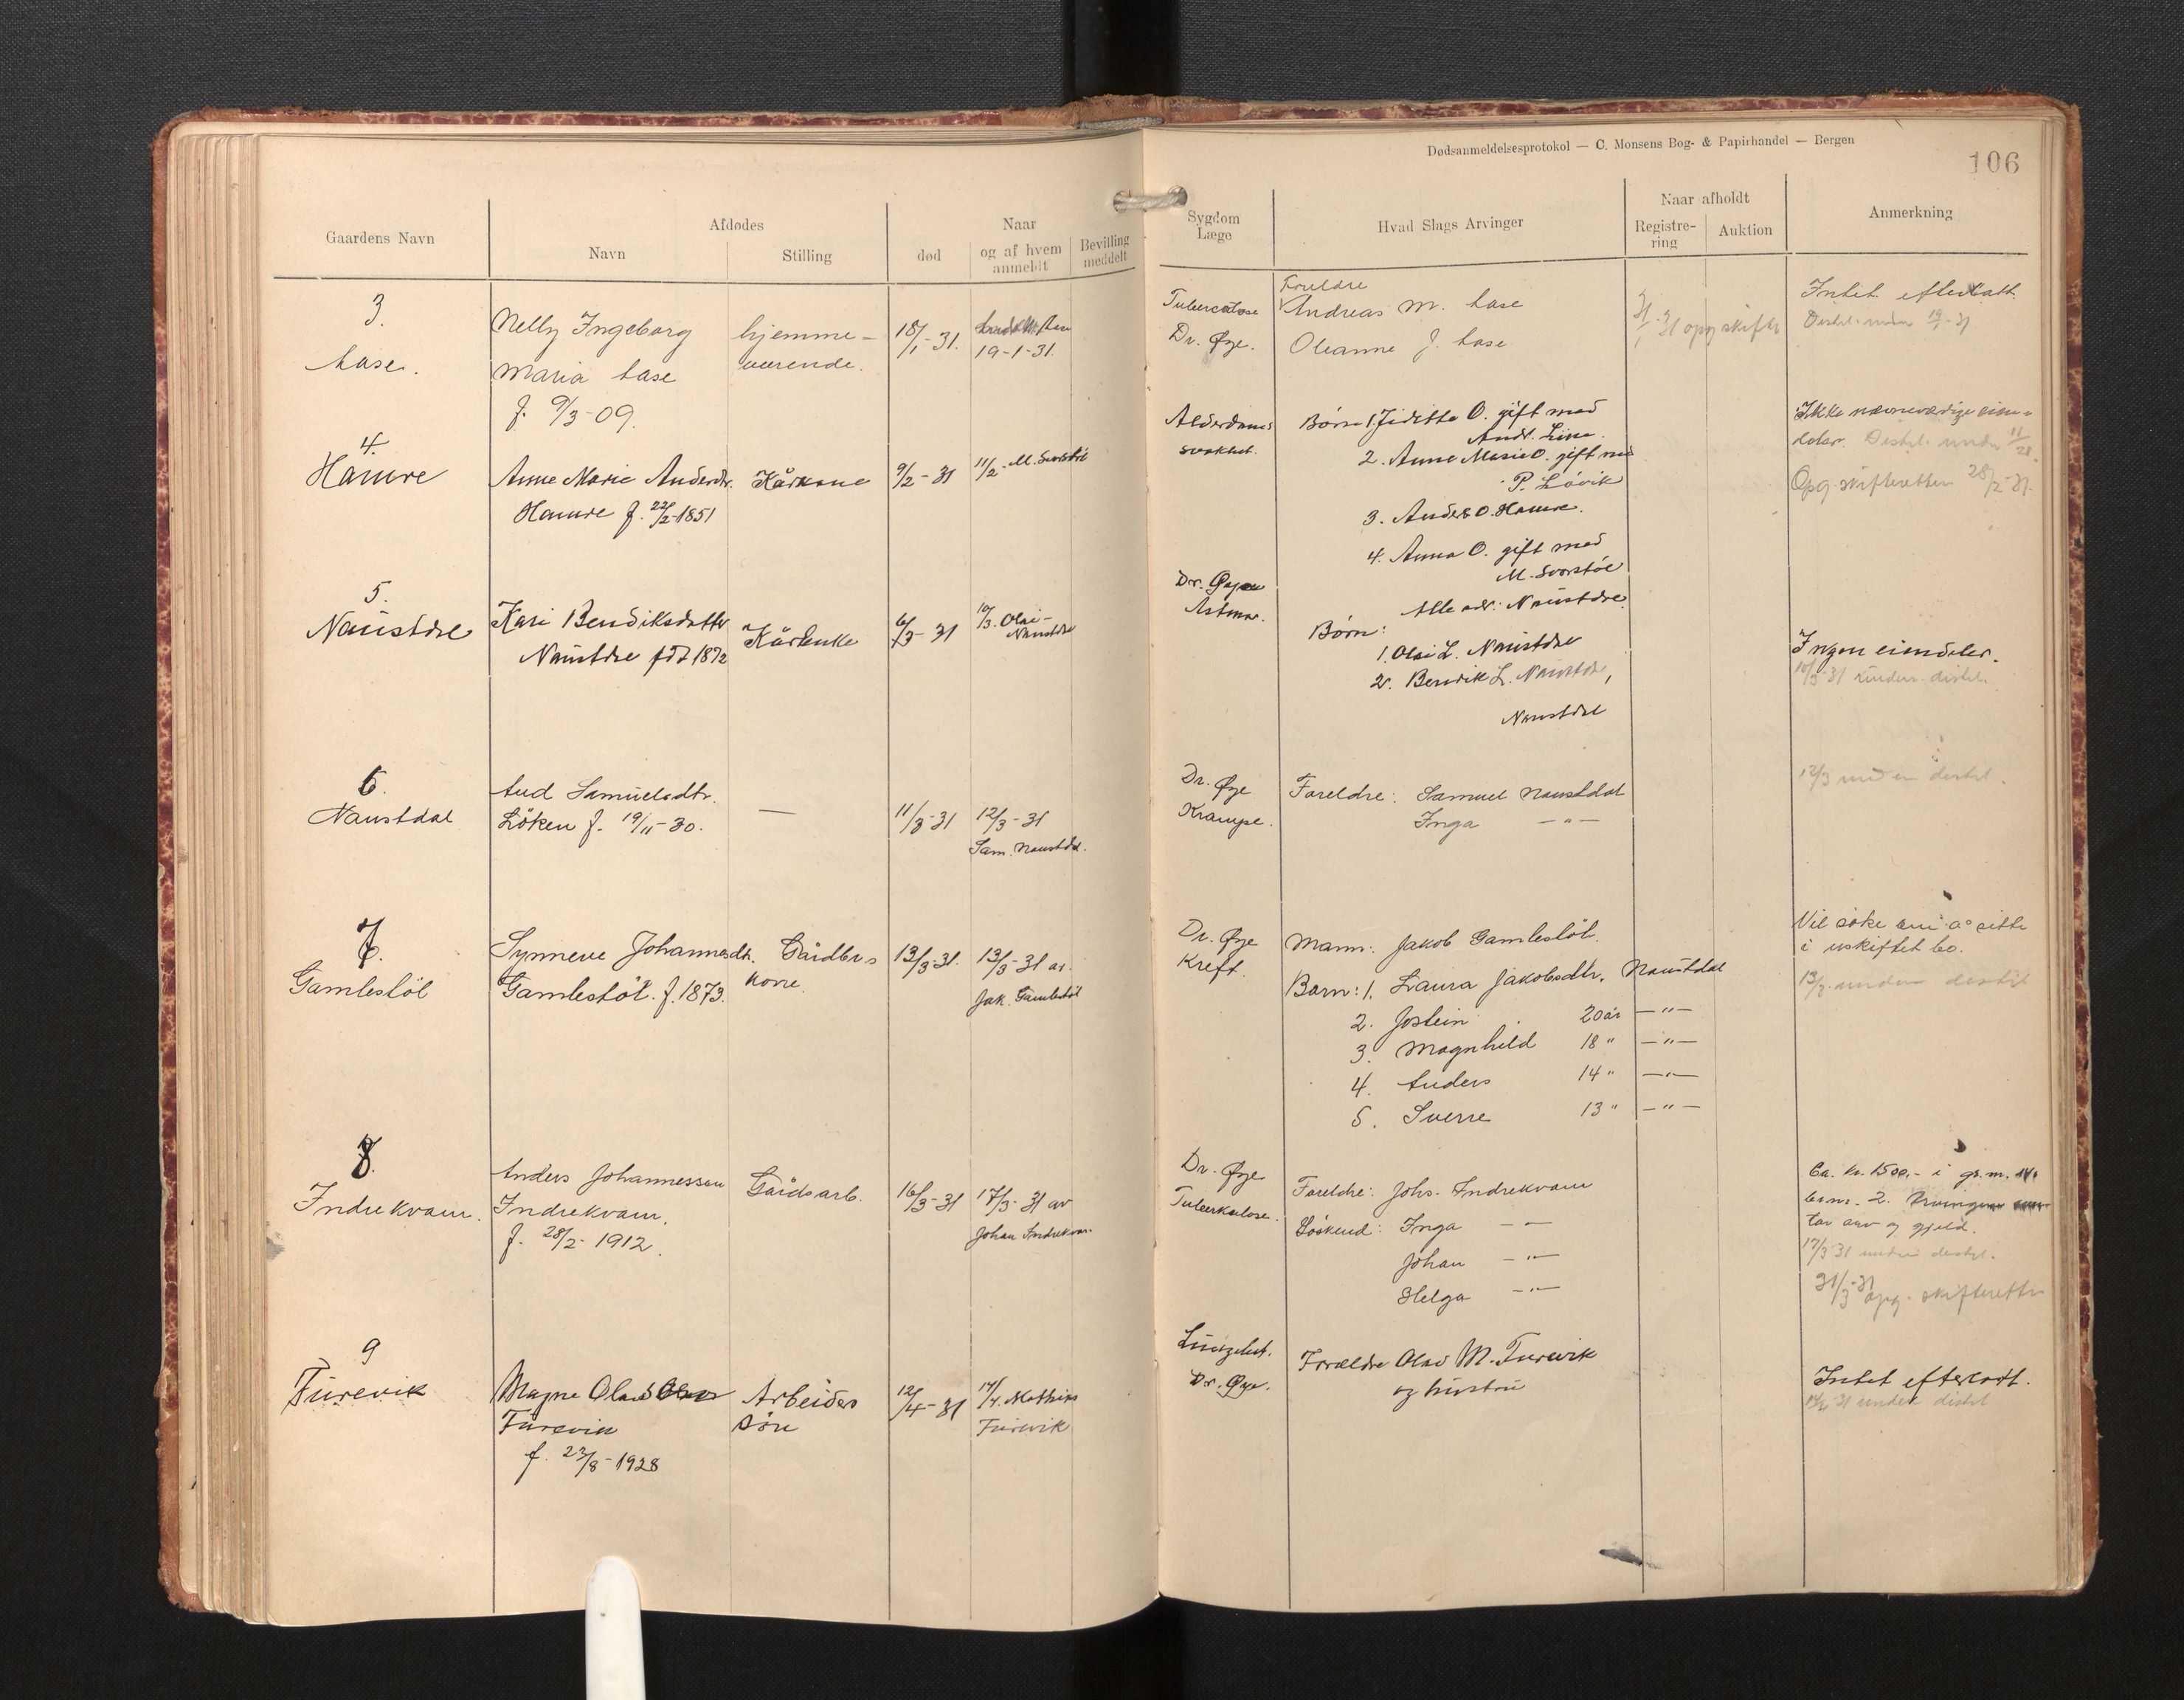 Dødsanmeldelsesprotokol — C. Monsens Bog- & Papirhandel — Bergen
106
Gaardens Navn
Afdødes
Navn
Stilling
Naar
død
og af hvem anmeldt
Bevilling meddelt
Sygdom
Læge
Hvad Slags Arvinger
Naar afholdt
Registre-
ring
Auktion
Anmerkning
3.
Nelly Ingeborg
Maria
f. 9/3-09.
hjemme-
værende.
18/1-31.
19-1-31.
Tuberculose
Dr. Øye.
Foreldre
Andreas M.
Oleanne J.
opg skifte
Intet efterlatt
4.
Hamre
Anne Marie Andersdtr.
Hamre f. 22/2-1851
Kårkone
9/2-31
11/2- M. Svorstöl
Alderdoms
svakhet.
Børn 1. Jiditta O. gift med
Andr.
2. Anne Marie O. gift med
P. Lövik
3. Anders O. Hamre.
4. Anna O. gift med
M. Svorstöl
Alle adr: Naustdal.
Ikke nævneværdige eien-
deler.
Opg. skifteretten 28/2-31.
5.
Naustdal
Kari Bendiksdatter
Naustdal född 1872
Kårenke
6/3-31
10/3. Olai
Naustdal
Dr. Øye
Astma.
Børn:
1. Olai L. Naustdal
2. Bendik L. Naustdal,
Naustdal
Ingen eiendeler.
10/3-31 under distel.
6.
Naustdal
Aud Samuelsdtr.
Löken f. 19/11-30.
—
11/3-31
12/3-31
Sam. Naustdal.
Dr. Øye
Krampe.
Foreldre: Samuel Naustdal
Inga —"—
12/3 under distel.
7.
Gamlestöl
Synneve Johannesdtr.
Gamlestöl. f. 1873.
Gårdbr.s
kone.
13/3-31.
13/3-31 av.
Jak. Gamlestöl
Dr. Øye
Kreft.
Mann: Jakob Gamlestöl.
Barn: 1. Laura Jakobsdtr. Naustdal
2. Jostein 20 år —"—
3. Magnhild 18 " —"—
4. Anders 14 " —"—
5. Sverre 13 " —"—
Vil söke om å sitte
i uskiftet bo.
13/3. under distel
8.
Indrekvam.
Anders Johannessen
Indrekvam.
f. 28/2-1912.
Gårdsarb.
16/3-31
17/3-31 av
Johan Indrekvam.
Dr. Øye
Tuberkulose.
Foreldre: Johs. Indrekvam
Söskend: Inga — —
Johan —"—
Helga —"—
Ca. kr. 1500,- i gs.m.
br.nr. 2.
tar arv og gjeld.
17/3-31 under distel.
31/3-31 opg. skifteretten
9
Furevik
Magne Olav
Furevik
f. 23/8-1928
Arbeider
sön
12/4-31
14/4. Mathias
Furevik
Lungebet.
Dr. Øye.
Forældre Olav M. Furevik
og hustru
Intet efterladt.
14/4-31 under distel